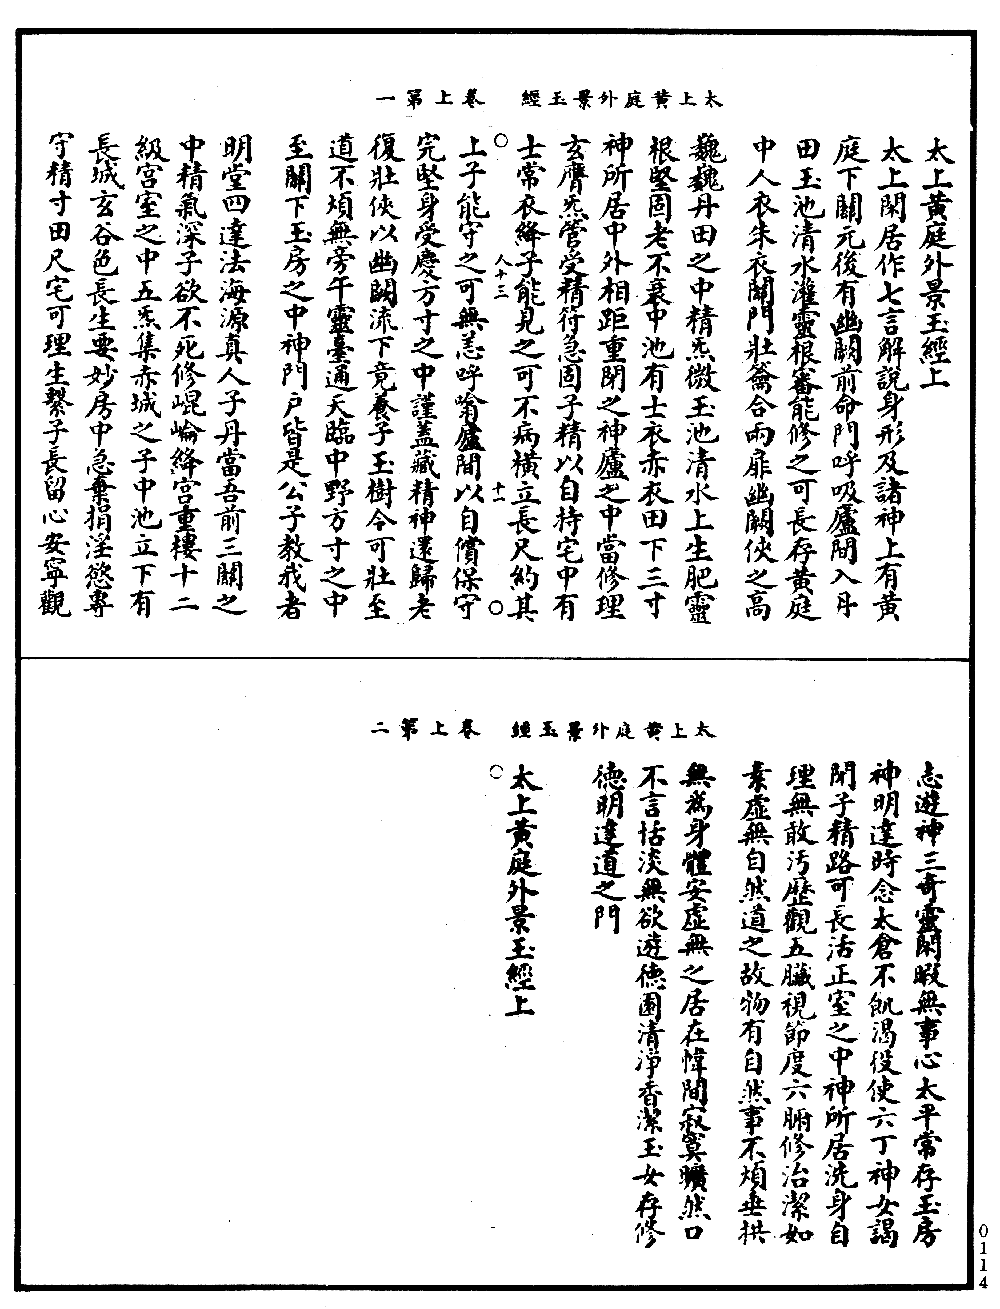 太上黃庭外景玉經　卷上第一
太上黃庭外景玉經上
太上閑居作七言解說身形及諸神上有黃
庭下關元後有幽闕前命門呼吸廬間入丹
田玉池清水灌靈根審能修之可長存黃庭
中人衣朱衣關門壯籥合兩扉幽闕俠之高
巍巍丹田之中精炁微玉池清水上生肥靈
根堅固老不衰中池有士衣赤衣田下三寸
神所居中外相距重閉之神廬之中當修理
玄膺炁管受精符急固子精以自持宅中有
士常衣絳子能見之可不病橫立長尺約其
人十三
十一
上子能守之可無恙呼噏廬間以自償保守
完堅身受慶方寸之中謹蓋藏精神還歸老
復壯俠以幽闕流下竟養子玉樹令可壯至
道不煩無旁午靈臺通天臨中野方寸之中
至關下玉房之中神門戶皆是公子教我者
明堂四達法海源真人子丹當吾前三關之
中精氣深子欲不死修崐崘絳宮重樓十二
級宮室之中五炁集赤城之子中池立下有
長城玄谷邑長生要妙房中急棄捐淫慾專
守精寸田尺宅可理生繫子長留心安寧觀
太上黃庭外景玉經　卷上第二
志遊神三奇靈閑暇無事心太平常存玉房
神明達時念太倉不飢渴役使六丁神女謁
閉子精路可長活正室之中神所居洗身自
理無敢汚歷觀五臟視節度六腑修治潔如
素虛無自然道之故物有自然事不煩垂拱
無為身體安虛無之居在幃間寂寞曠然口
不言恬淡無欲遊德園清淨香潔玉女存修
德明達道之門
太上黃庭外景玉經上
0114